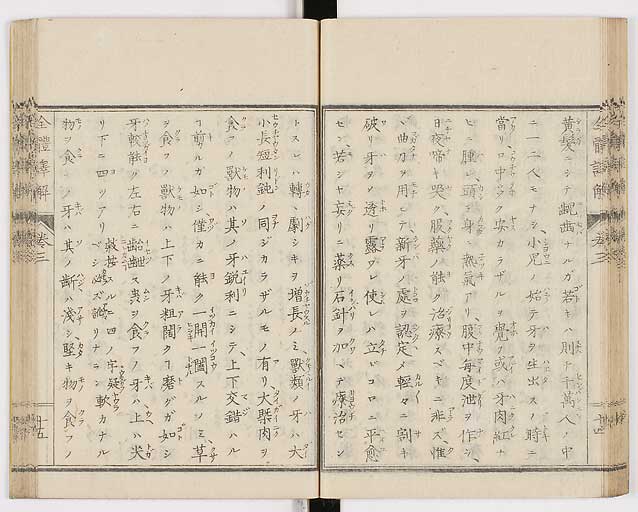 黄髪ニシテ齔齒ナルガ若キハ則チ千萬人ノ中
ニ一二人モナシ小児ノ始テ牙ヲ生出スノ時ニ
當リ口中多ク安カラザルヲ覺フ或ハ牙肉紅ナ
ヒニ腫レ頭ト身ニ熱氣アリ腹中毎度泄ヲ作シ
日夜啼キ哭ク服藥ノ能ク治療スベキニ非ズ惟
曲刀ヲ用ヒテ新牙ノ處ヲ認定メ輕々ニ割キ
破リ牙ヲメ透リ露ワレ使レハ立トコロニ平愈
セン若シヤ妄リニ藥リ石針ヲ加ヘテ療治セン
全體譯解 巻三 廿四
トスレハ轉タ劇シキヲ増長ノミ獸類ノ牙ハ大
小長短利鈍ノ同ジカラザルモノ有リ大槩肉ヲ
食フノ獸物ハ其ノ牙鋭利ニシテ上下交錯ハル
ヿ剪ルガ如シ僅カニ能ク一開一闔スルノミ草
ヲ食フノ獸物ハ上下ノ牙粗闊ク磨グガ如シ
牙較能ク左右ニ齟齬ス蟲ヲ食フノ牙ハ上ハ尖
リ下ニ四ツアリ
物ヲ食フノ牙ハ其ノ齗ハ淺シ堅キ物ヲ食フノ
全體譯解 巻三 廿五